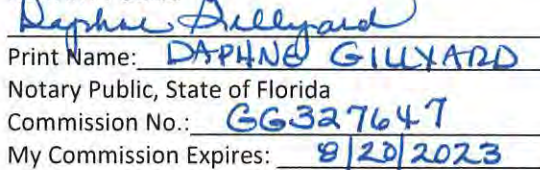 Daphne Gillyard
Print Name: DAPHNE GILLYARD
Notary Public, State of Florida
Commission No.: GG327647
My Commission Expires: 8|20|2023